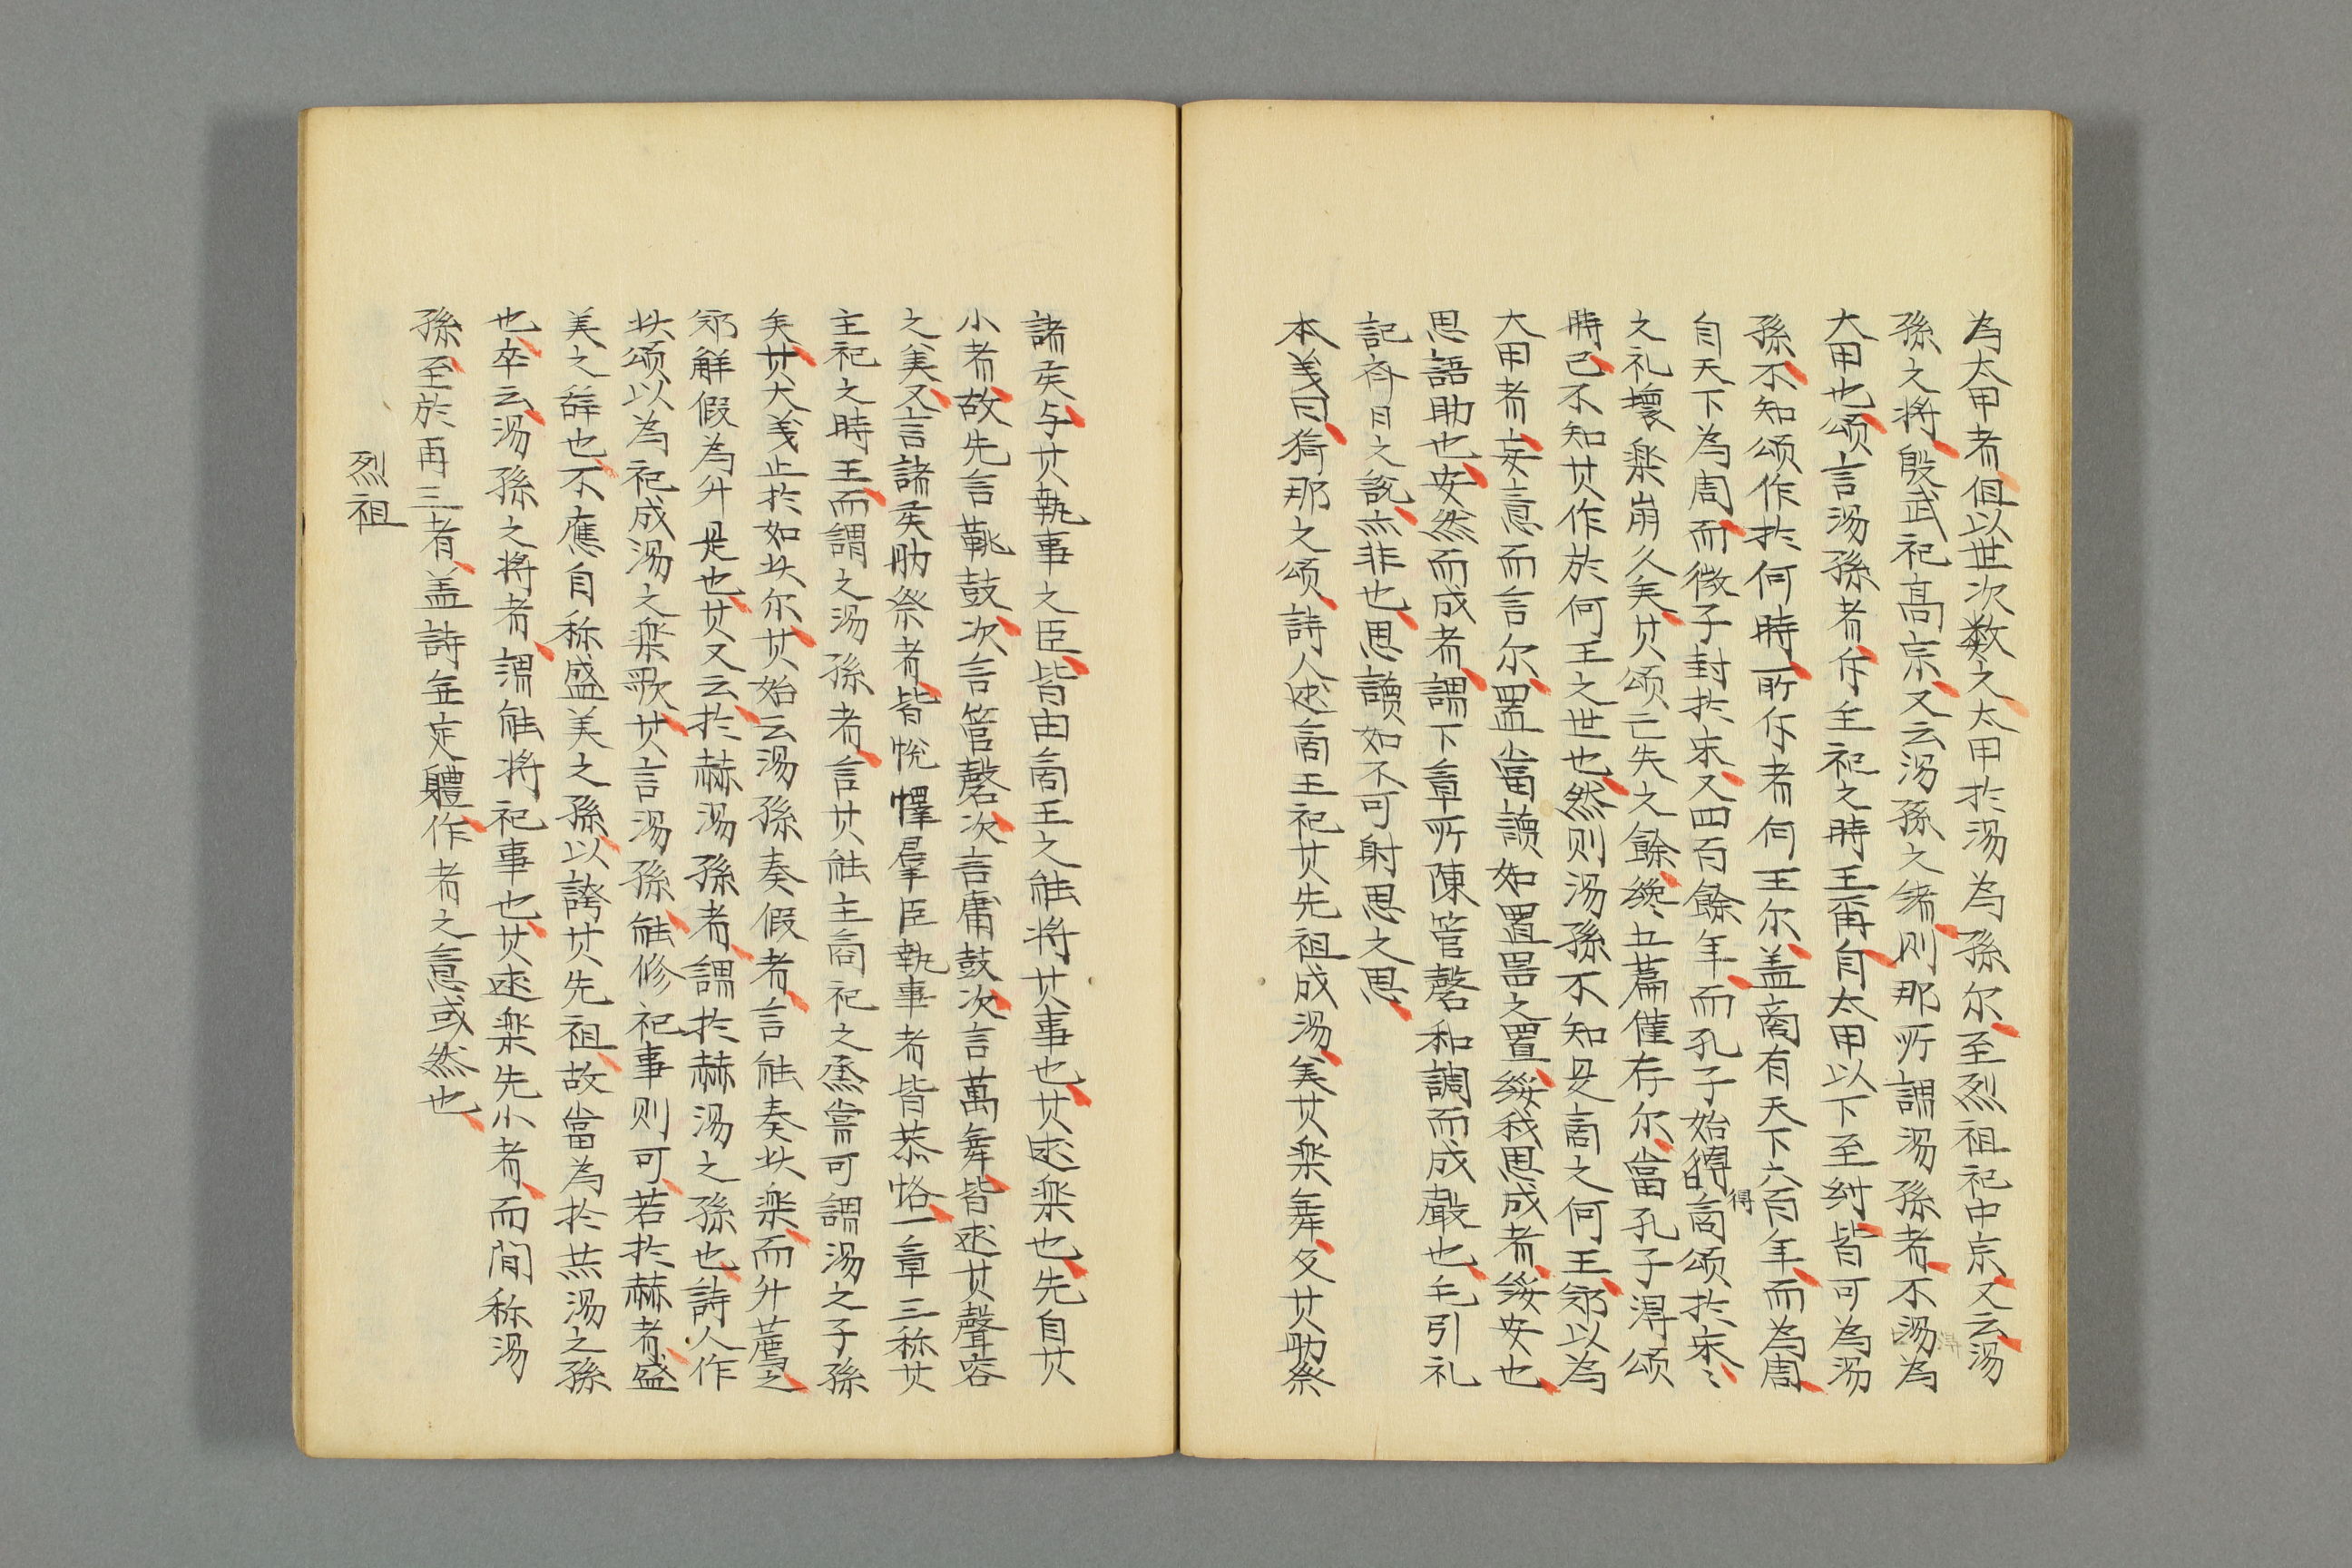 為太甲者但以世次数之太甲於湯為孫尔至烈祖祀中宗又云湯
孫之将殷武祀高宗又云湯孫之緒則那所謂湯孫者不湯為
大甲也頌言湯孫者斥主祀之時王爾自太甲以下至紂皆可為湯
孫不知頌作於何時所斥者何王尔盖商有天下六百年而為周
自天下為周而微子封於宋又四百餘年而孔子始得商頌於宋〻
得
之礼壞樂崩久矣其頌亡失之餘纔五篇僅存尔當孔子得頌
時已不知其作於何王之世也然则湯孫不知是商之何王鄭以為
大甲者妄意而言尔置當讀如置器之置綏我思成者綏安也
思語助也安然而成者謂下章所陳管磬和調而成嚴也毛引礼
記斉日之說亦非也思讀如不可射思之思
本義曰猗那之頌詩人述商王祀其先祖成湯美其樂舞及其助祭
諸矦与其執事之臣皆由商王之能将其事也其述楽也先自其
小者故先言鞉鼓次言管磬次言庸鼓次言萬舞皆述其聲容
之美又言諸矦助祭者皆悅懌羣臣執事者皆恭恪一章三称其
主祀之時王而謂之湯孫者言其能主商祀之烝甞可謂湯之子孫
矣其大義止於如此尔其始云湯孫奏假者言能奏此楽而升薦之
鄭解假為升是也其又云於赫湯孫者謂於赫湯之孫也詩人作
此頌以為祀成湯之楽歌其言湯孫能修祀事则可若於赫者盛
美之辞也不應自称盛美之孫以誇其先祖故當為於赫湯之孫
也卒云湯孫之将者謂能将祀事也其述楽先小者而間称湯
孫至於再三者盖詩無定體作者之意或然也
烈祖